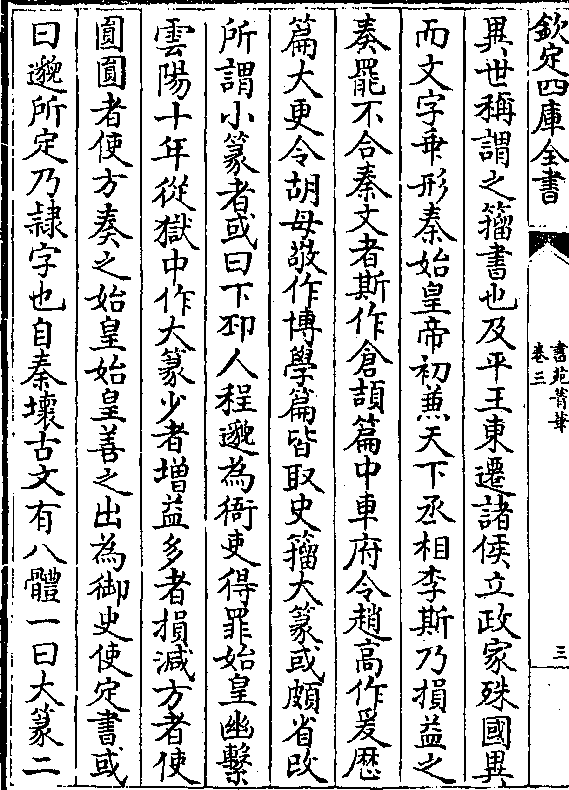 欽定四庫全書
書苑菁華
卷三
三
異世稱謂之籀書也及平王東遷諸侯立政家殊國異
而文字乖形秦始皇帝初兼天下丞相李斯乃損益之
奏罷不合秦文者斯作倉頡篇中車府令趙高作爰歴
篇大史令胡母敬作博學篇皆取史籀大篆或頗省改
所謂小篆者或曰下邳人程邈為衙吏得罪始皇幽繫
雲陽十年從獄中作大篆少者增益多者損減方者使
圓圓者使方奏之始皇始皇善之出為御史使定書或
曰邈所定乃隷字也自秦壊古文有八體一曰大篆二